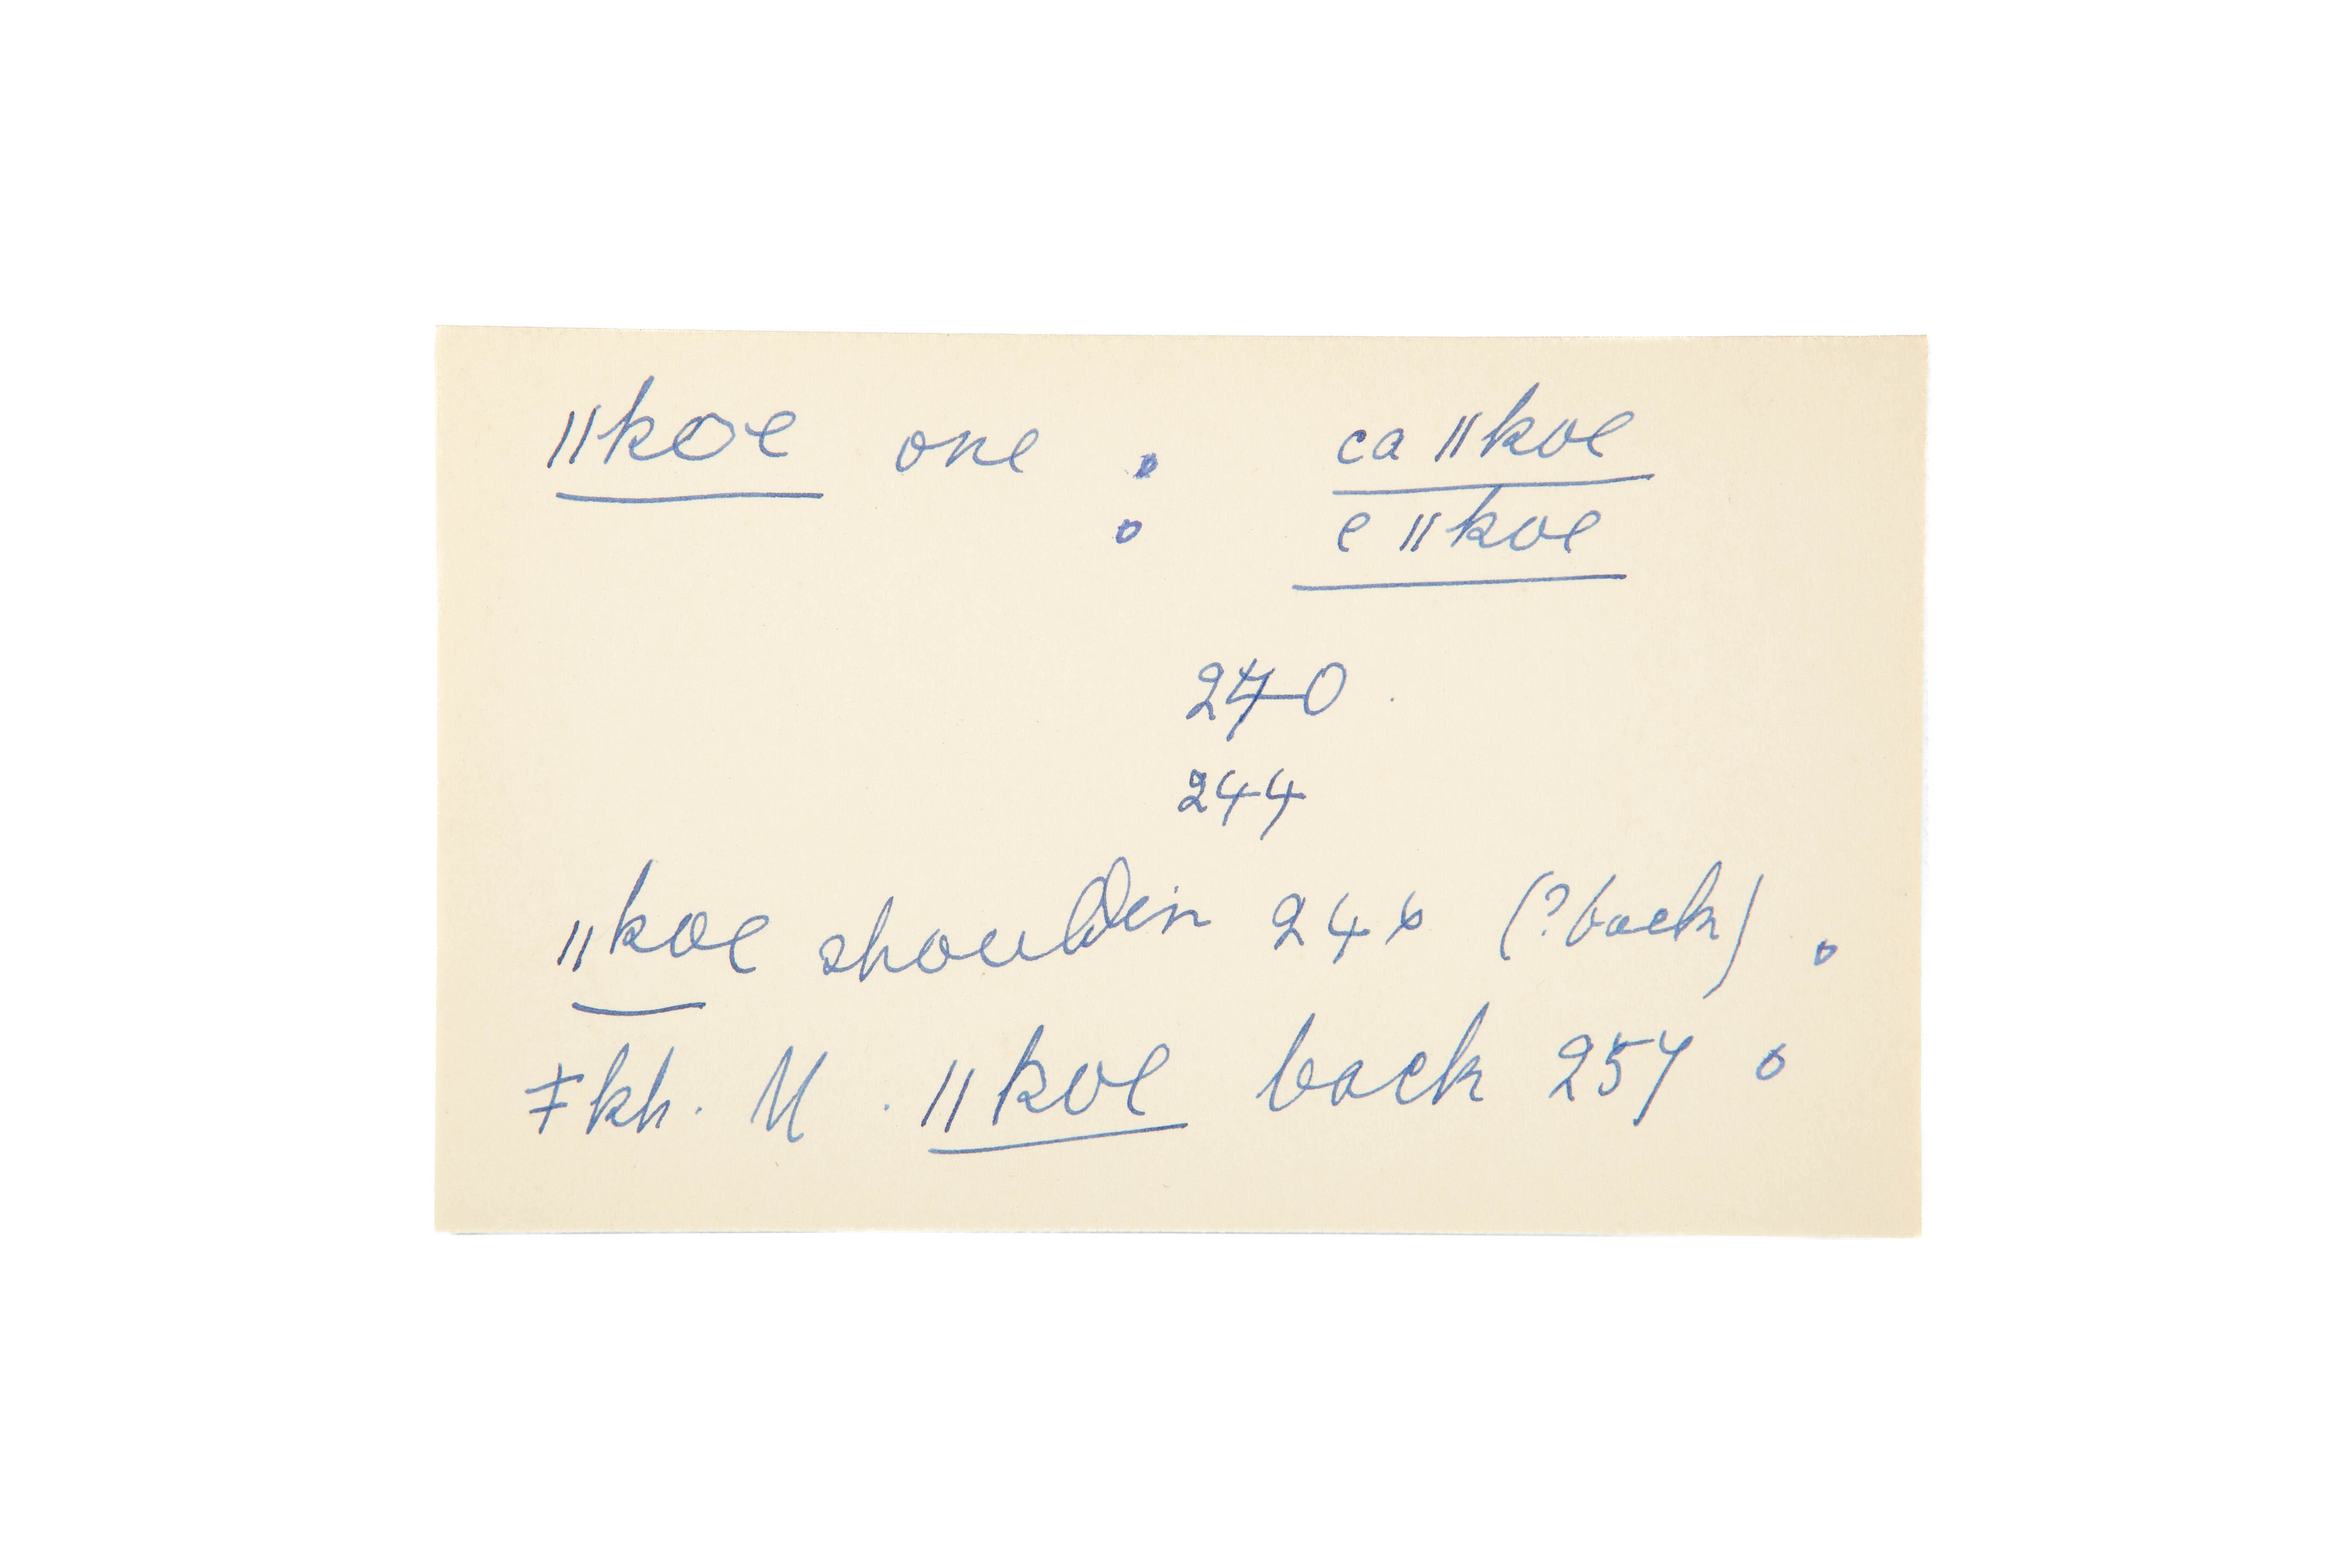 ǁkoe one : ca ǁkoe
e ǁkoe
240
244
ǁkoe shoulder in 246 (? back)
ǂkh. M. ǁkoe back 257